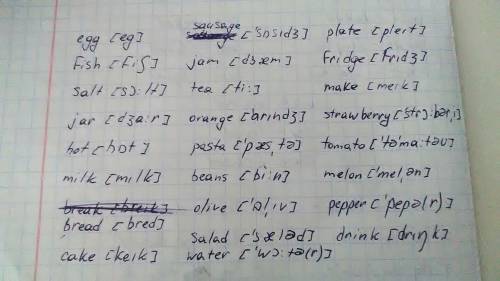 egg [eg]
fish [fiʃ]
salt [sɔ:lt]
jar [dʒa:r]
hot [hɒt]
milk [mɪlk]
break [breik]
bread [bred]
cake [keɪk]
sausage
['sɒsɪdʒ]
jam [dʒæm]
tea [ti:]
orange ['ɒrɪndʒ]
pasta ['pæs,tə]
beans [bi:n]
olive ['ɒl,ɪv]
salad ['sæləd]
water ['wɔ:tə(r)]
plate [pleɪt]
fridge [frɪdʒ]
make [meɪk]
strawberry ['strɔ:bər,i]
tomato ['tə'ma:təʊ]
melon ['mel,ən]
pepper ['pepə(r)]
drink [drɪŋk]